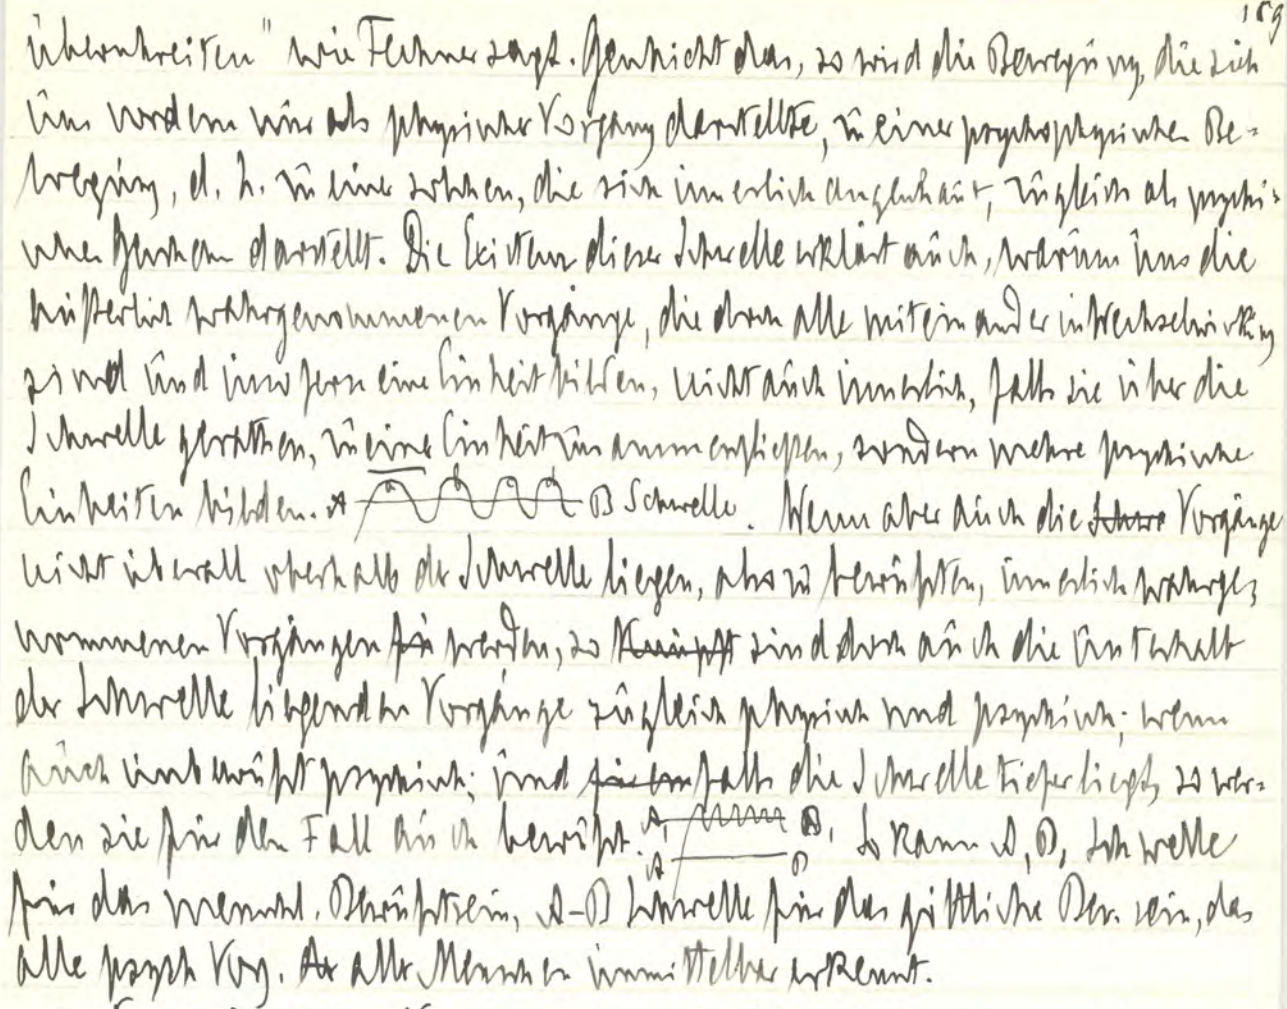 189
überschreiten" wie Fechner sagt. Geschieht das, so wird die Bewegung, die sich
uns vordem nur als physischer Vorgang darstellte, zu einer psychophysischen Be-
wegung, d. h. zu einer solchen, die sich innerlich angeschaut, zugleich als psychi-
sches Geschehen darstellt. Die Existenz dieser Schwelle erklärt auch, warum uns die
äußerlich wahrgenommenen Vorgänge, die doch alle miteinander in Wechselwirkung
sind und insofern eine Einheit bilden, nicht auch innerlich, falls sie über die
Schwelle gerathen, zu einer Einheit zusammenfließen, sondern mehre psychische
Einheiten bilden. A B Schwelle. Wenn aber auch die Vorgänge
nicht überall oberhalb der Schwelle liegen, also zu bewußten, innerlich wahrge-
nommenen Vorgängen werden, so sind doch auch die unterhalb
der Schwelle liegenden Vorgänge zugleich physisch und psychisch; wenn
auch unbewußt psychisch; und falls die Schwelle tiefer liegt, so wer-
den sie für den Fall auch bewußt. A, B, So kann A, B, Schwelle
A B
für das menschl. Bewußtsein, A-B Schwelle für das göttliche Bew. sein, das
alle psych Vorg. aller Menschen unmittelbar erkennt.